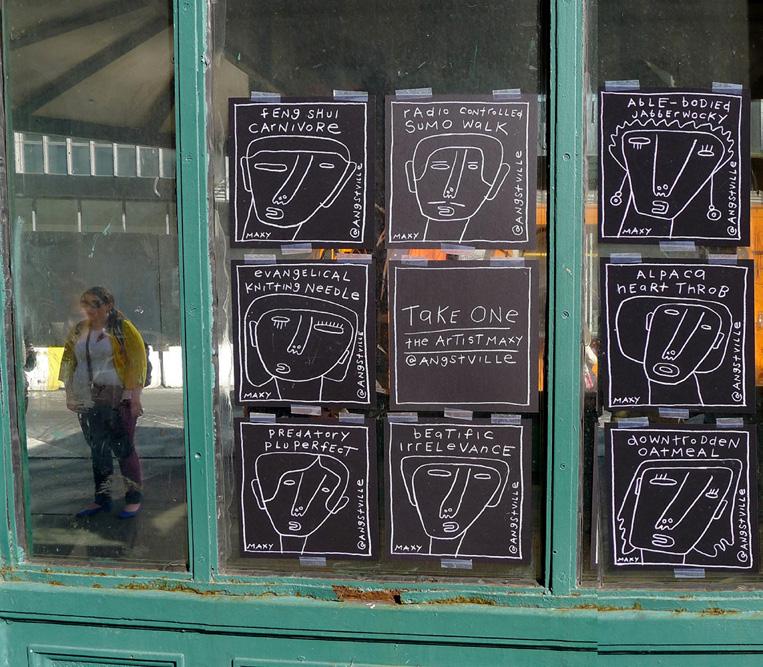 fENG SHUI
CARNIVORE
@ANGSTVILLE
MAXY
rADIO CONTROLLED
SUMO WALK
@ANGSTVILLE
MAXY
ABLE-BODIED
JABBERWOCKY
@ANGSTVILLE
MAXY
eVANGELICAL
KNITTING NEEDLE
@ANGSTVILLE
MAXY
TAKE ONe
the ArTIST MAXY
@ANGSTVILLE
ALPACA
heArT THrOB
@ANGSTVILLE
MAXY
PrEDATORY
PLUPERFECT
@ANGSTVILLE
MAXY
bEATIFIC
IrrELEVANCE
@ANGSTVILLE
MAXY
dOWNTrODDEN
OATMEAL
@ANGSTVILLE
MAXY